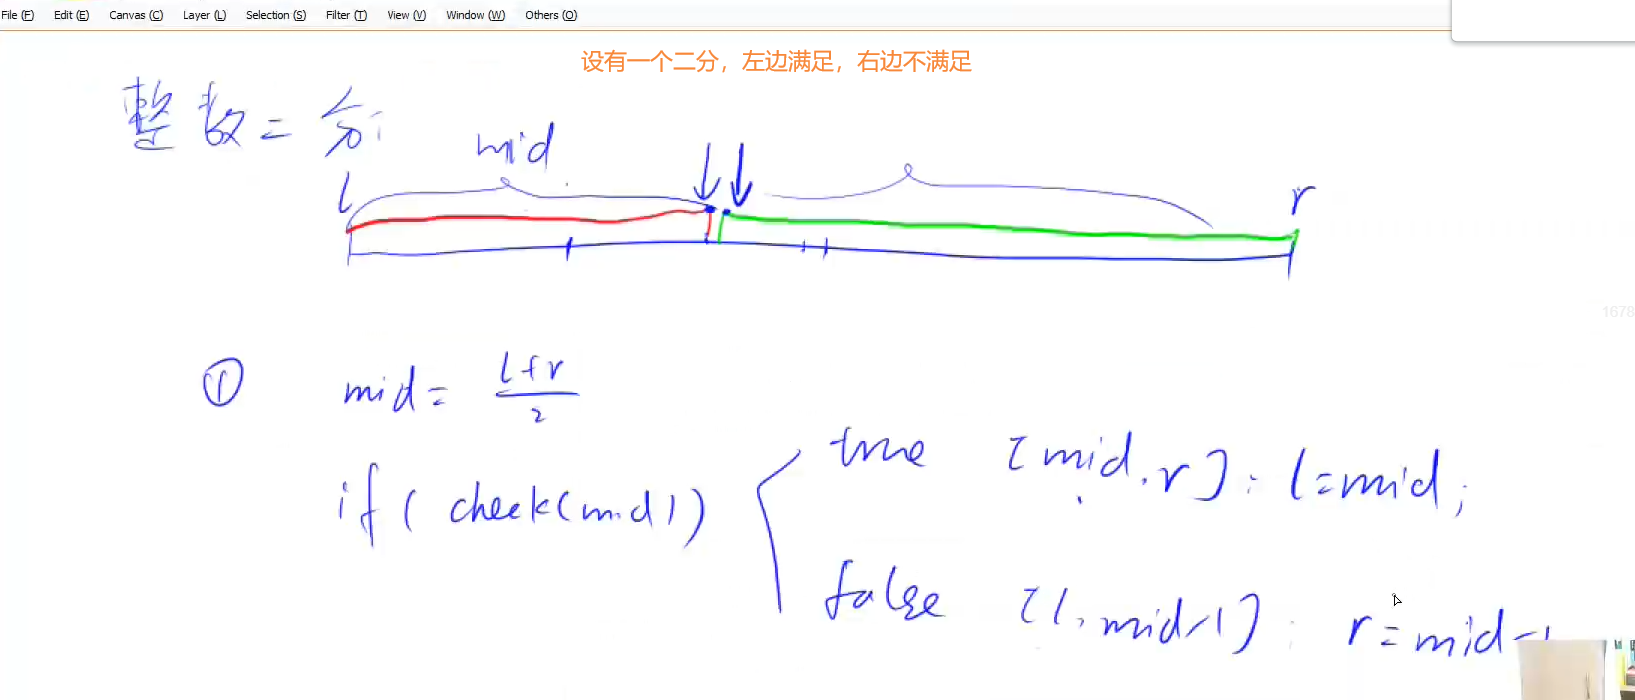 File (F) Edit (E) Canvas (C) Layer (L) Selection (S) Filter (T) View (V) Window (W) Others (O)
设有一个二分，左边满足，右边不满足
整数二分
mid
l r
1678
① mid = l+r/2
if ( check(mid) )
true [mid, r] : l=mid;
false [l, mid-1] : r=mid-1